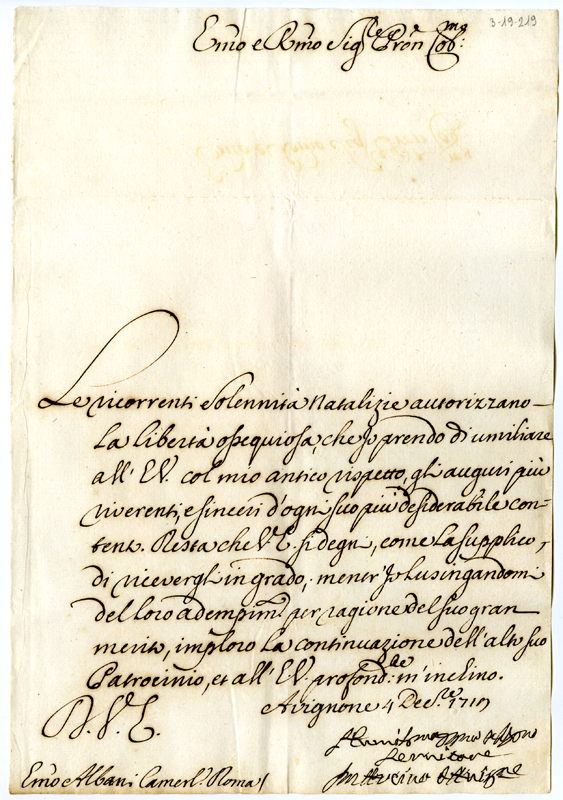 3-19-219
Emo e Rmo Sigre Prōn Colmo:
Le ricorrenti Solennità Natalizie autorizzano
la libertà ossequiosa, che Jo prendo di umiliare
all' E.V. col mio antico rispetto, gli auguri più
riverenti, e sinceri d'ogni suo più desiderabile con-
tento. Resta che V.E. si degni, come la supplico,
di ricevergli in grado, mentr' Jo Lusingandomi
del loro adempimto per ragione del suo gran
merito, imploro la continuazione dell' alto suo
Patrocinio, et all' E.V. profondte m'inclino.
Avignone 4 Dec.re 1719
D.V.E.
Servitore
Emo Albani Camerl.o Roma